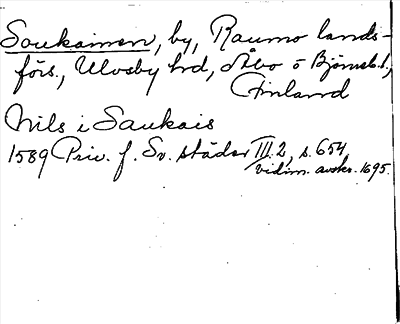 Saukainen, by, Raumo lands-
förs., Ulvsby hd, Åbo o Björneb. l,
Finland
Nils i Saukais
1589 Priv. f. Sv. städer III:2, s. 654
vidim. avskr. 1695.